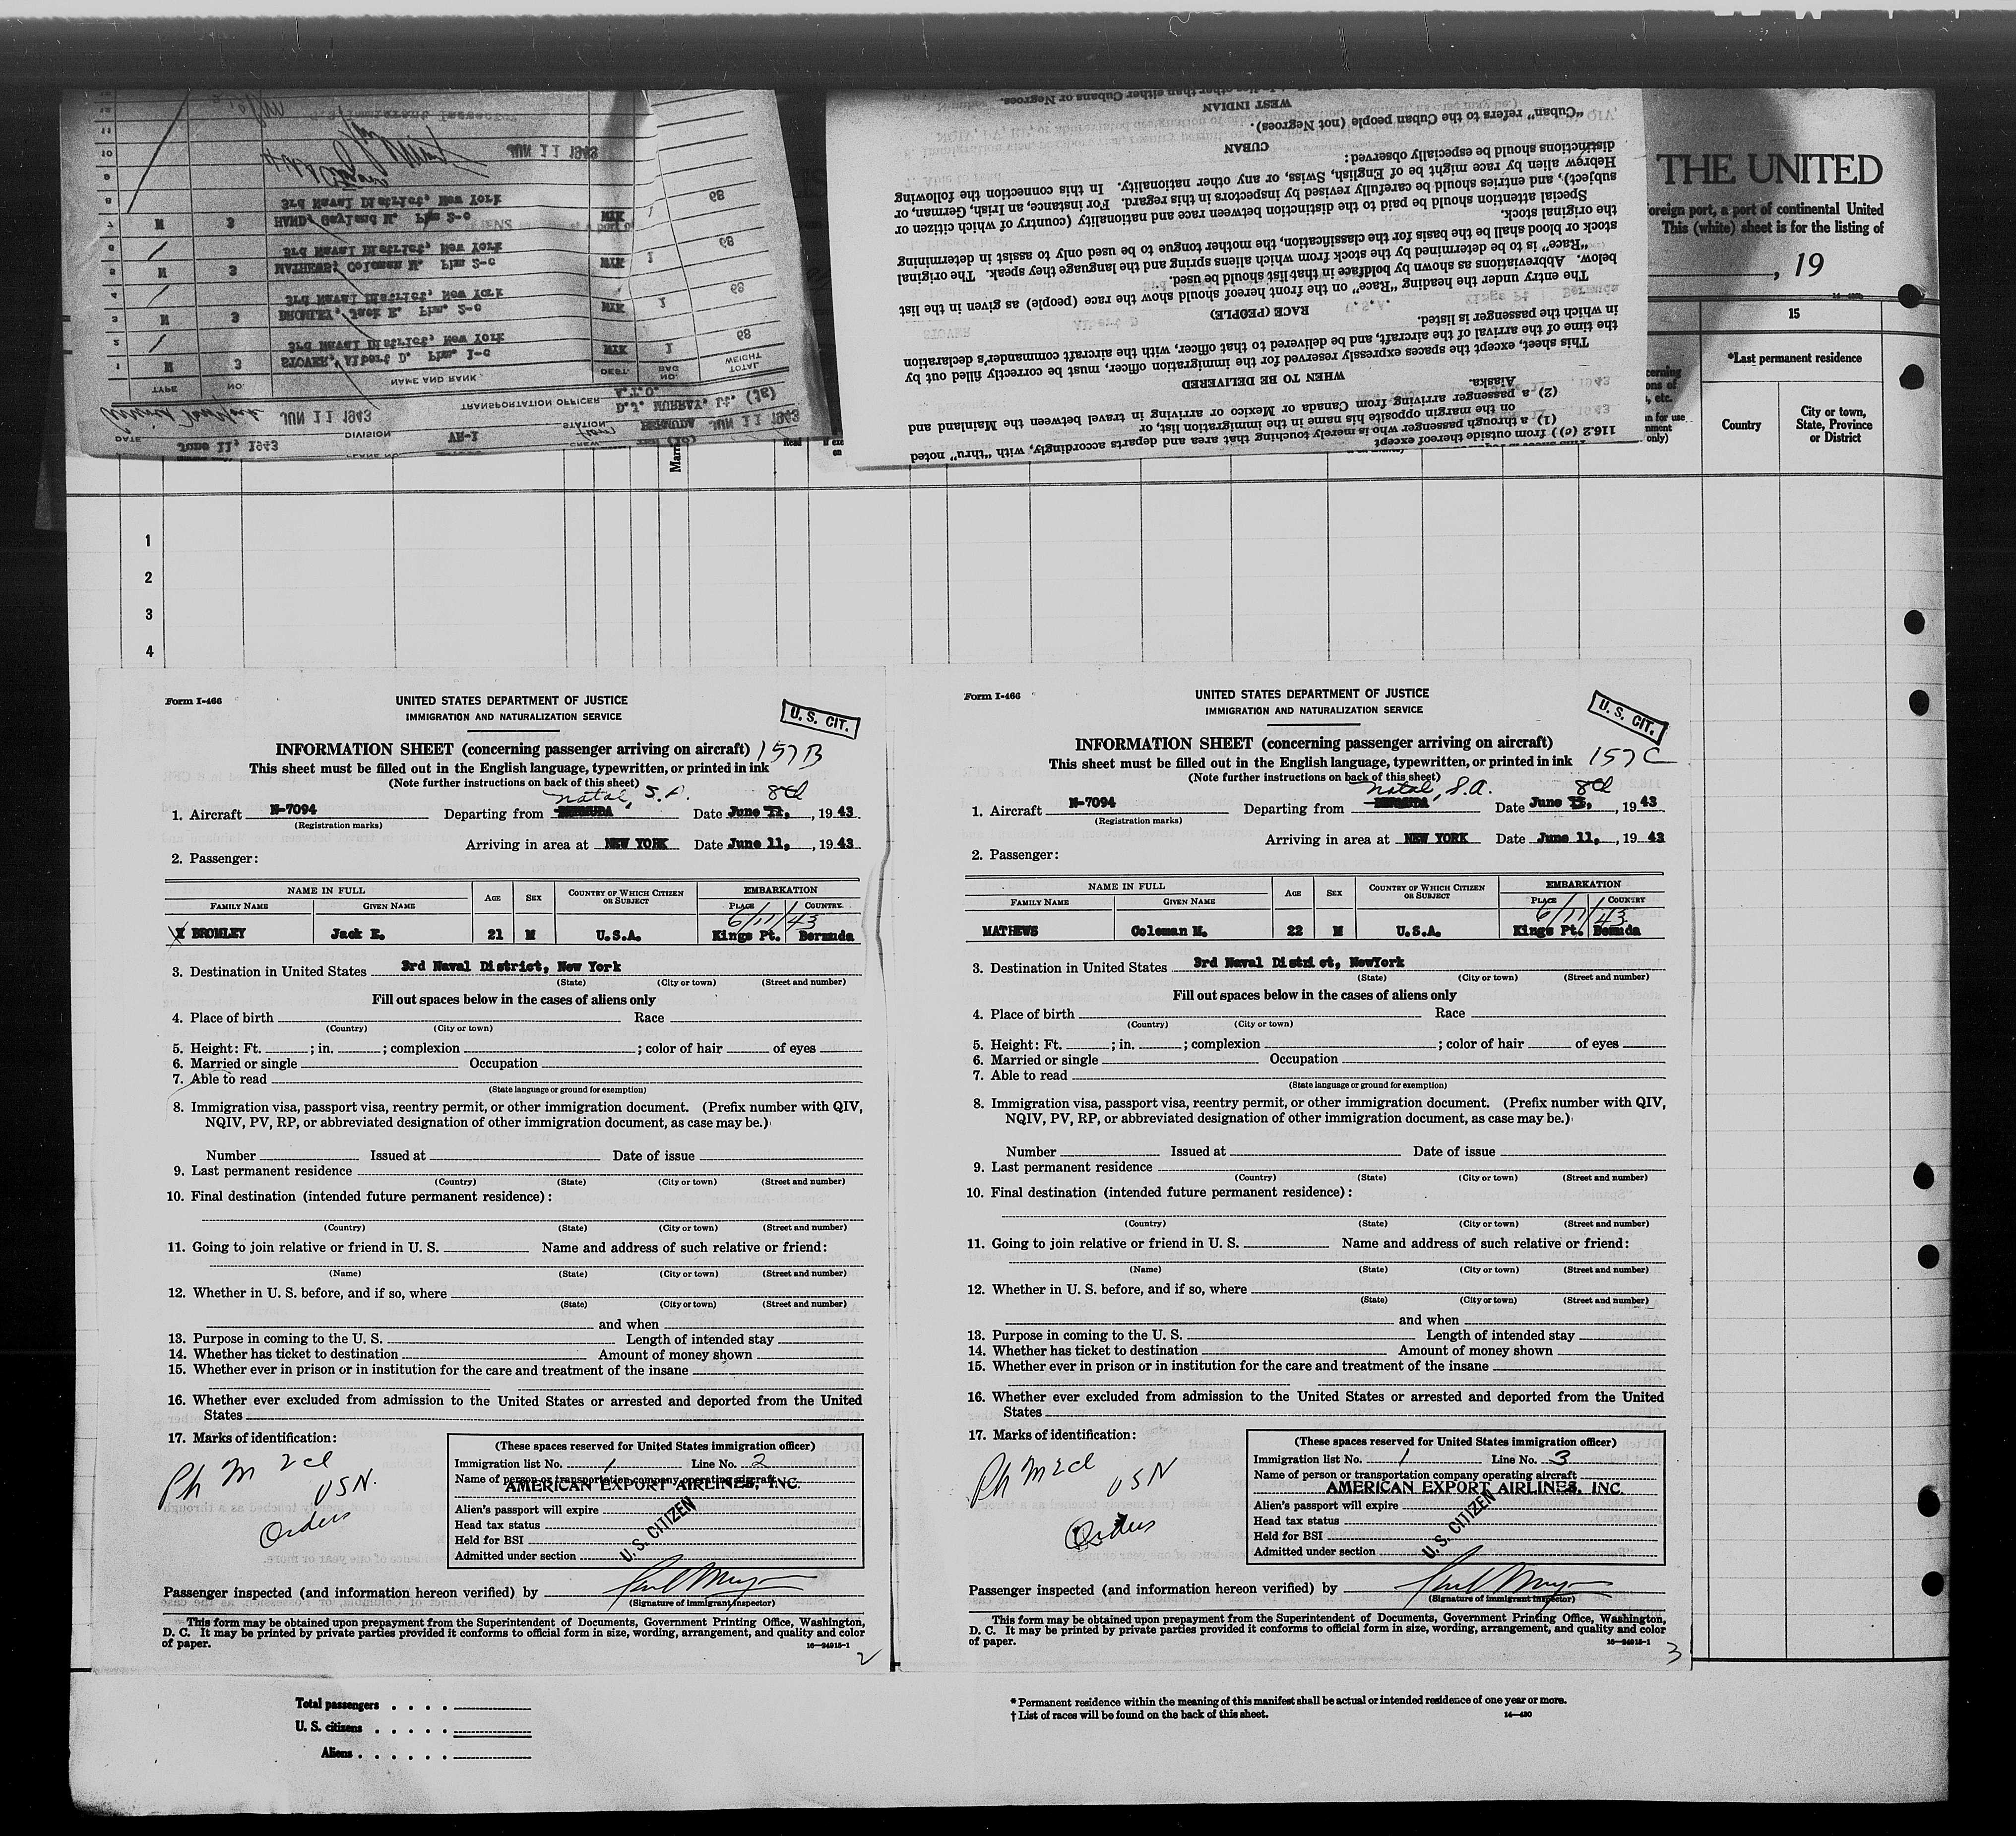 THE UNITED
oreign port, a port of continental United
This (white) sheet is for the listing of
, 19
15
*Last permanent residence
Country
City or town,
State, Province
or District
TOTAL
WEIGHT
BAG
NO.
DEST.
NAME AND RANK
NO.
TYPE
DATE
June 11, 1943
DIVISION
VR-1
JUN 11 1943
TRANSPORTATION OFFICER
D.J. MURRAY, Lt. (jg)
A.T.O.
STATION
BERMUDA
JUN 11 1943
1 M 3 STOVER, Albert D. Phm. 1-c NYK 1 68
2 3rd Naval District, New York
3 M 3 BROMLEY, Jack E. Phm. 2-c NYK 1 68
4 3rd Naval District, New York
5 M 3 MATHEWS, Coleman M. Phm 2-c NYK 1 68
6 3rd Naval District, New York
7 M 3 HAND, Gayland M. Phm 2-c NYK 1 68
8 3rd Naval District, New York
9
10
11
JUN 11 1943
116.2 (c)) from outside thereof except
(1) a through passenger who is merely touching that area and departs accordingly, with "thru" noted
on the margin opposite his name in the immigration list, or
(2) a passenger arriving from Canada or Mexico or arriving in travel between the Mainland and
Alaska.
WHEN TO BE DELIVERED
This sheet, except the spaces expressly reserved for the immigration officer, must be correctly filled out by
the time of the arrival of the aircraft, and be delivered to that officer, with the aircraft commander's declaration
in which the passenger is listed.
RACE (PEOPLE)
The entry under the heading "Race" on the front hereof should show the race (people) as given in the list
below. Abbreviations as shown by boldface in that list should be used.
"Race" is to be determined by the stock from which aliens spring and the language they speak. The original
stock or blood shall be the basis for the classification, the mother tongue to be used only to assist in determining
the original stock.
Special attention should be paid to the distinction between race and nationality (country of which citizen or
subject), and entries should be carefully revised by inspectors in this regard. For instance, an Irish, German, or
Hebrew alien by race might be of English, Swiss, or any other nationality. In this connection the following
distinctions should be especially observed:
CUBAN
"Cuban" refers to the Cuban people (not Negroes).
WEST INDIAN
other than either Cubans or Negroes.
1
2
3
4
Form I-466
UNITED STATES DEPARTMENT OF JUSTICE
IMMIGRATION AND NATURALIZATION SERVICE
U. S. CIT.
INFORMATION SHEET (concerning passenger arriving on aircraft) 157B
This sheet must be filled out in the English language, typewritten, or printed in ink
(Note further instructions on back of this sheet)
Natal, S.A. 8th
1. Aircraft N-7094 Departing from BERMUDA Date June 11, , 19 43
(Registration marks)
Arriving in area at NEW YORK Date June 11, , 19 43
2. Passenger:
NAME IN FULL AGE SEX COUNTRY OF WHICH CITIZEN OR SUBJECT EMBARKATION
FAMILY NAME GIVEN NAME PLACE COUNTRY
6/11/43
X BROMLEY Jack E. 21 M U.S.A. Kings Pt. Bermuda
3. Destination in United States 3rd Naval District, New York
(State) (City or town) (Street and number)
Fill out spaces below in the cases of aliens only
4. Place of birth Race
(Country) (City or town)
5. Height: Ft. ; in. ; complexion ; color of hair of eyes
6. Married or single Occupation
7. Able to read
(State language or ground for exemption)
8. Immigration visa, passport visa, reentry permit, or other immigration document. (Prefix number with QIV,
NQIV, PV, RP, or abbreviated designation of other immigration document, as case may be.)
Number Issued at Date of issue
9. Last permanent residence
(Country) (State) (City or town) (Street and number)
10. Final destination (intended future permanent residence):
(Country) (State) (City or town) (Street and number)
11. Going to join relative or friend in U. S. Name and address of such relative or friend:
(Name) (State) (City or town) (Street and number)
12. Whether in U. S. before, and if so, where
(State) (City or town) (Street and number)
and when
13. Purpose in coming to the U. S. Length of intended stay
14. Whether has ticket to destination Amount of money shown
15. Whether ever in prison or in institution for the care and treatment of the insane
16. Whether ever excluded from admission to the United States or arrested and deported from the United
States
17. Marks of identification:
Ph M 2cl
USN.
Orders
(These spaces reserved for United States immigration officer)
Immigration list No. 1 Line No. 2
Name of person or transportation company operating aircraft
AMERICAN EXPORT AIRLINES, INC.
Alien's passport will expire
Head tax status
Held for BSI
Admitted under section
U. S. CITIZEN
Passenger inspected (and information hereon verified) by
(Signature of immigrant inspector)
This form may be obtained upon prepayment from the Superintendent of Documents, Government Printing Office, Washington,
D. C. It may be printed by private parties provided it conforms to official form in size, wording, arrangement, and quality and color
of paper. 16—24915-1
2
Form I-466
UNITED STATES DEPARTMENT OF JUSTICE
IMMIGRATION AND NATURALIZATION SERVICE
U. S. CIT.
INFORMATION SHEET (concerning passenger arriving on aircraft)
This sheet must be filled out in the English language, typewritten, or printed in ink 157C
(Note further instructions on back of this sheet)
Natal, S.A. 8th
1. Aircraft N-7094 Departing from BERMUDA Date June 11, , 19 43
(Registration marks)
Arriving in area at NEW YORK Date June 11, , 19 43
2. Passenger:
NAME IN FULL AGE SEX COUNTRY OF WHICH CITIZEN OR SUBJECT EMBARKATION
FAMILY NAME GIVEN NAME PLACE COUNTRY
6/11/43
MATHEWS Coleman M. 22 M U.S.A. Kings Pt. Bemuda
3. Destination in United States 3rd Naval District, NewYork
(State) (City or town) (Street and number)
Fill out spaces below in the cases of aliens only
4. Place of birth Race
(Country) (City or town)
5. Height: Ft. ; in. ; complexion ; color of hair of eyes
6. Married or single Occupation
7. Able to read
(State language or ground for exemption)
8. Immigration visa, passport visa, reentry permit, or other immigration document. (Prefix number with QIV,
NQIV, PV, RP, or abbreviated designation of other immigration document, as case may be.)
Number Issued at Date of issue
9. Last permanent residence
(Country) (State) (City or town) (Street and number)
10. Final destination (intended future permanent residence):
(Country) (State) (City or town) (Street and number)
11. Going to join relative or friend in U. S. Name and address of such relative or friend:
(Name) (State) (City or town) (Street and number)
12. Whether in U. S. before, and if so, where
(State) (City or town) (Street and number)
and when
13. Purpose in coming to the U. S. Length of intended stay
14. Whether has ticket to destination Amount of money shown
15. Whether ever in prison or in institution for the care and treatment of the insane
16. Whether ever excluded from admission to the United States or arrested and deported from the United
States
17. Marks of identification:
Ph M 2cl
USN
Orders
(These spaces reserved for United States immigration officer)
Immigration list No. 1 Line No. 3
Name of person or transportation company operating aircraft
AMERICAN EXPORT AIRLINES, INC.
Alien's passport will expire
Head tax status
Held for BSI
Admitted under section
U. S. CITIZEN
Passenger inspected (and information hereon verified) by
(Signature of immigrant inspector)
This form may be obtained upon prepayment from the Superintendent of Documents, Government Printing Office, Washington,
D. C. It may be printed by private parties provided it conforms to official form in size, wording, arrangement, and quality and color
of paper. 16—24915-1
3
Total passengers
U. S. citizens
Aliens
* Permanent residence within the meaning of this manifest shall be actual or intended residence of one year or more.
† List of races will be found on the back of this sheet. 14—430